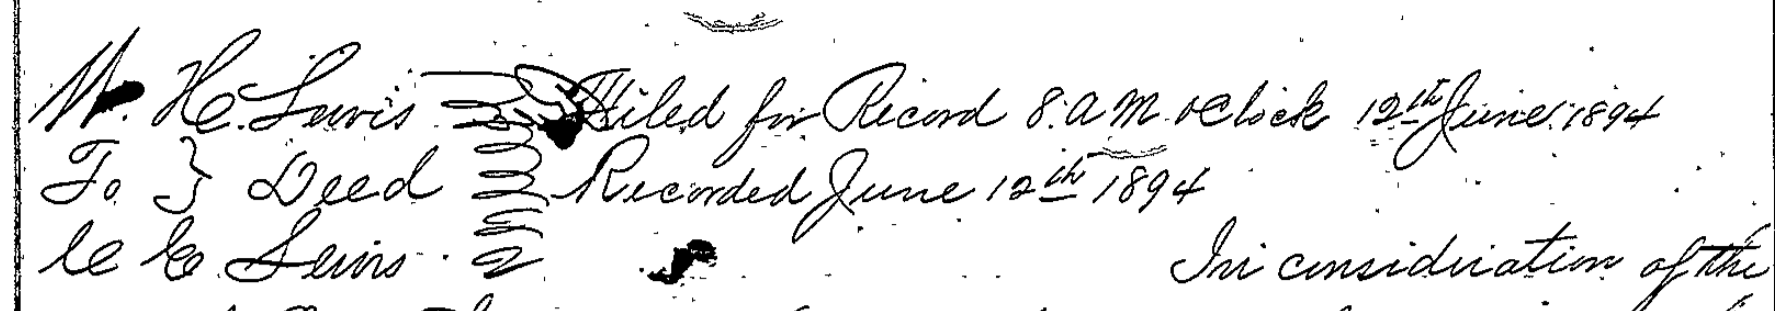 W. H. Lewis Filed for Record 8. A M. oClock 12th June 1894
To } Deed Recorded June 12th 1894
C C. Lewis In consideration of the